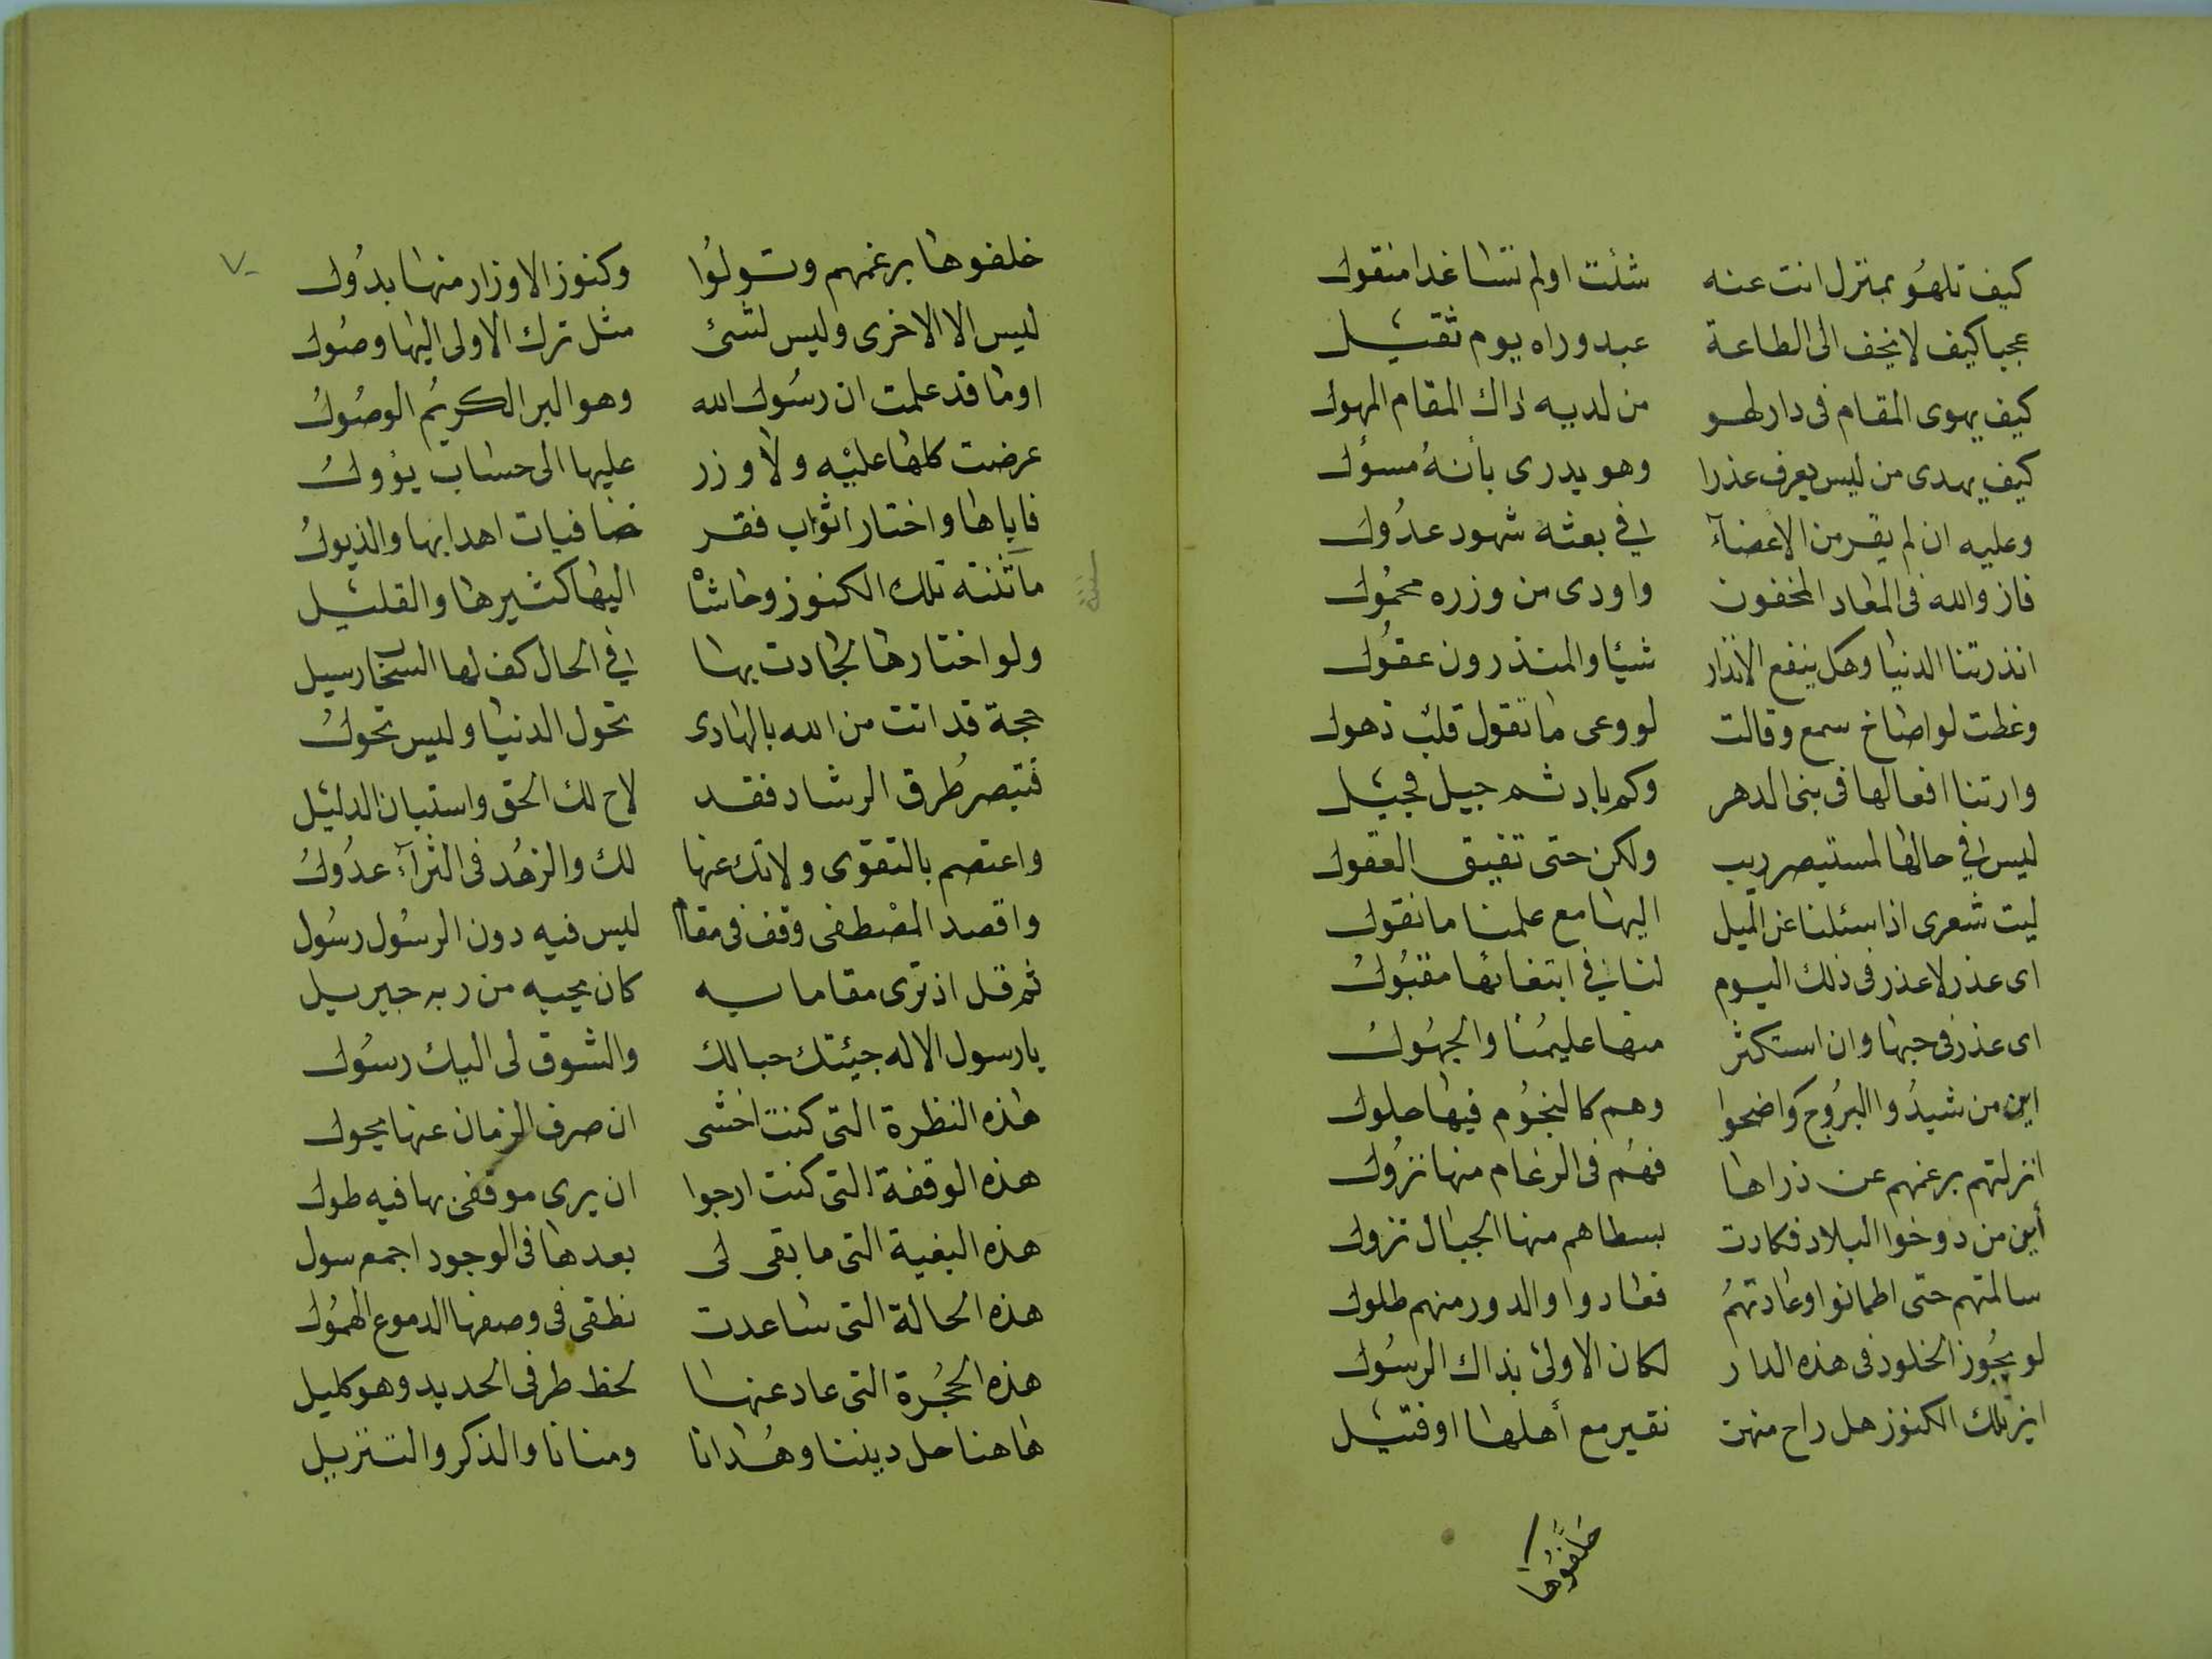 كيف تلهُو بمنزل انت عنه شئت اولم تشا غدا منقول
عجبا كيف لا يخف الى الطاعة عبد وراه يوم ثقيل
كيف يهوى المقام فى دار لهو من لديه ذاك المقام المهول
كيف يهدى من ليس يعرف عذرا وهو يدرى بأنهُ مسؤل
وعليه ان لم يقر من الأعضآء فى بعثه شهود عدُول
فاز والله فى المعاد المخفون واودى من وزره محمُول
انذرتنا الدنيا وهل ينفع الانذار شيئا والمنذرون عقُول
وعظت لو اصاخ سمع وقالت لو وعى ما تقول قلب ذهول
وارتنا افعالها فى بنى الدهر وكم باد ثم جيل فجيل
ليس فى حالها لمستبصر ريب ولكن حتى تفيق العقول
ليت شعرى اذا سئلنا عن الميل اليها مع علمنا ما نقول
اى عذر لا عذر فى ذلك اليوم لنا فى ابتغائها مقبُول
اى عذر فى حبها وان استكثر منها عليمُنا والجهُول
اين من شيدُوا البرُوج واضحوا وهم كالنجُوم فيها حلول
انزلتهم برغمهم عن ذراها فهُم فى الرغام منها نزُول
أين من دوخوا البلاد فكادت بسطاهم منها الجبال تزول
سالمتهم حتى اطمانوا وعادتهمُ فعادوا والدور منهم طلول
لو يجُوز الخلود فى هذه الدار لكان الاولى بذاك الرسُول
اين تلك الكنوز هل راح منهن نقير مع أهلها او فتيل
خلفُوها
٧٠
خلفوها برغمهم وتولوُا وكنوز الاوزار منها بدُول
ليس الا الاخرى وليس لشئ مثل ترك الاولى اليها وصُول
اوما قد علمت ان رسُول الله وهو البر الكريمُ الوصُولُ
عرضت كلها عليه ولا وزر عليها الى حساب يؤولُ
فاباها واختار اثواب فقر ضافيات اهدابها والذيولُ
مآثنته تلك الكنوز وحاشا اليها كثيرها والقليل
ولو اختارها لجادت بها فى الحال كف لها السخا رسيل
حجة قد اتت من الله بالهادى تحول الدنيا وليس تحولُ
فتبصر طُرق الرشاد فقد لاح لك الحق واستبان الدليل
واعتصم بالتقوى ولا تك عنها لك والزهُد فى الثرآء عدُولُ
واقصد المصْطفى وقف فى مقام ليس فيه دون الرسُول رسُول
ثم قل اذ ترى مقاما به كان يحييه من ربه جبريل
يا رسول الاله جيئتك حبا لك والشوق لى اليك رسُول
هذه النظرة التى كنت اخشى ان صرف الزمان عنها يحول
هذه الوقفة التى كنت ارجوا ان يرى موقفى بها فيه طول
هذه البغية التى ما بقى لى بعدها فى الوجود اجمع سول
هذه الحالة التى ساعدت نطقى فى وصفها الدموع الهمُول
هذه الحجُرة التى عاد عنها لحظ طرفى الحديد وهو كليل
هاهنا حل ديننا وهُدانا ومنانا والذكر والتنزيل